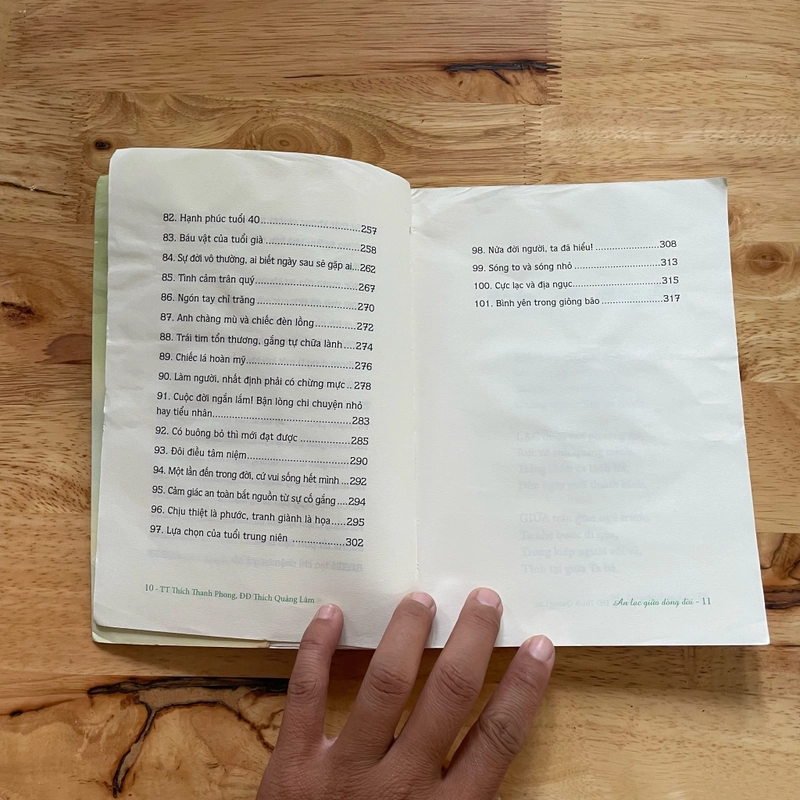 82. Hạnh phúc tuổi 40..............................257
83. Báu vật của tuổi già ............................258
84. Sự đời vô thường, ai biết ngày sau sẽ gặp ai...262
85. Tình cảm trân quý................................267
86. Ngón tay chỉ trăng ..............................270
87. Anh chàng mù và chiếc đèn lồng...............272
88. Trái tim tổn thương, gắng tự chữa lành ....274
89. Chiếc lá hoàn mỹ.................................276
90. Làm người, nhất định phải có chừng mực ..278
91. Cuộc đời ngắn lắm! Bận lòng chi chuyện nhỏ
hay tiểu nhân..........................................283
92. Có buông bỏ thì mới đạt được .................285
93. Đôi điều tâm niệm................................290
94. Một lần đến trong đời, cứ vui sống hết mình ...292
95. Cảm giác an toàn bắt nguồn từ sự cố gắng ....294
96. Chịu thiệt là phước, tranh giành là họa.....295
97. Lựa chọn của tuổi trung niên ..................302
10 - TT Thích Thanh Phong, ĐĐ Thích Quảng Lâm
98. Nửa đời người, ta đã hiểu! .....................308
99. Sóng to và sóng nhỏ ............................313
100. Cực lạc và địa ngục.............................315
101. Bình yên trong giông bão .....................317
An lạc giữa dòng đời - 11